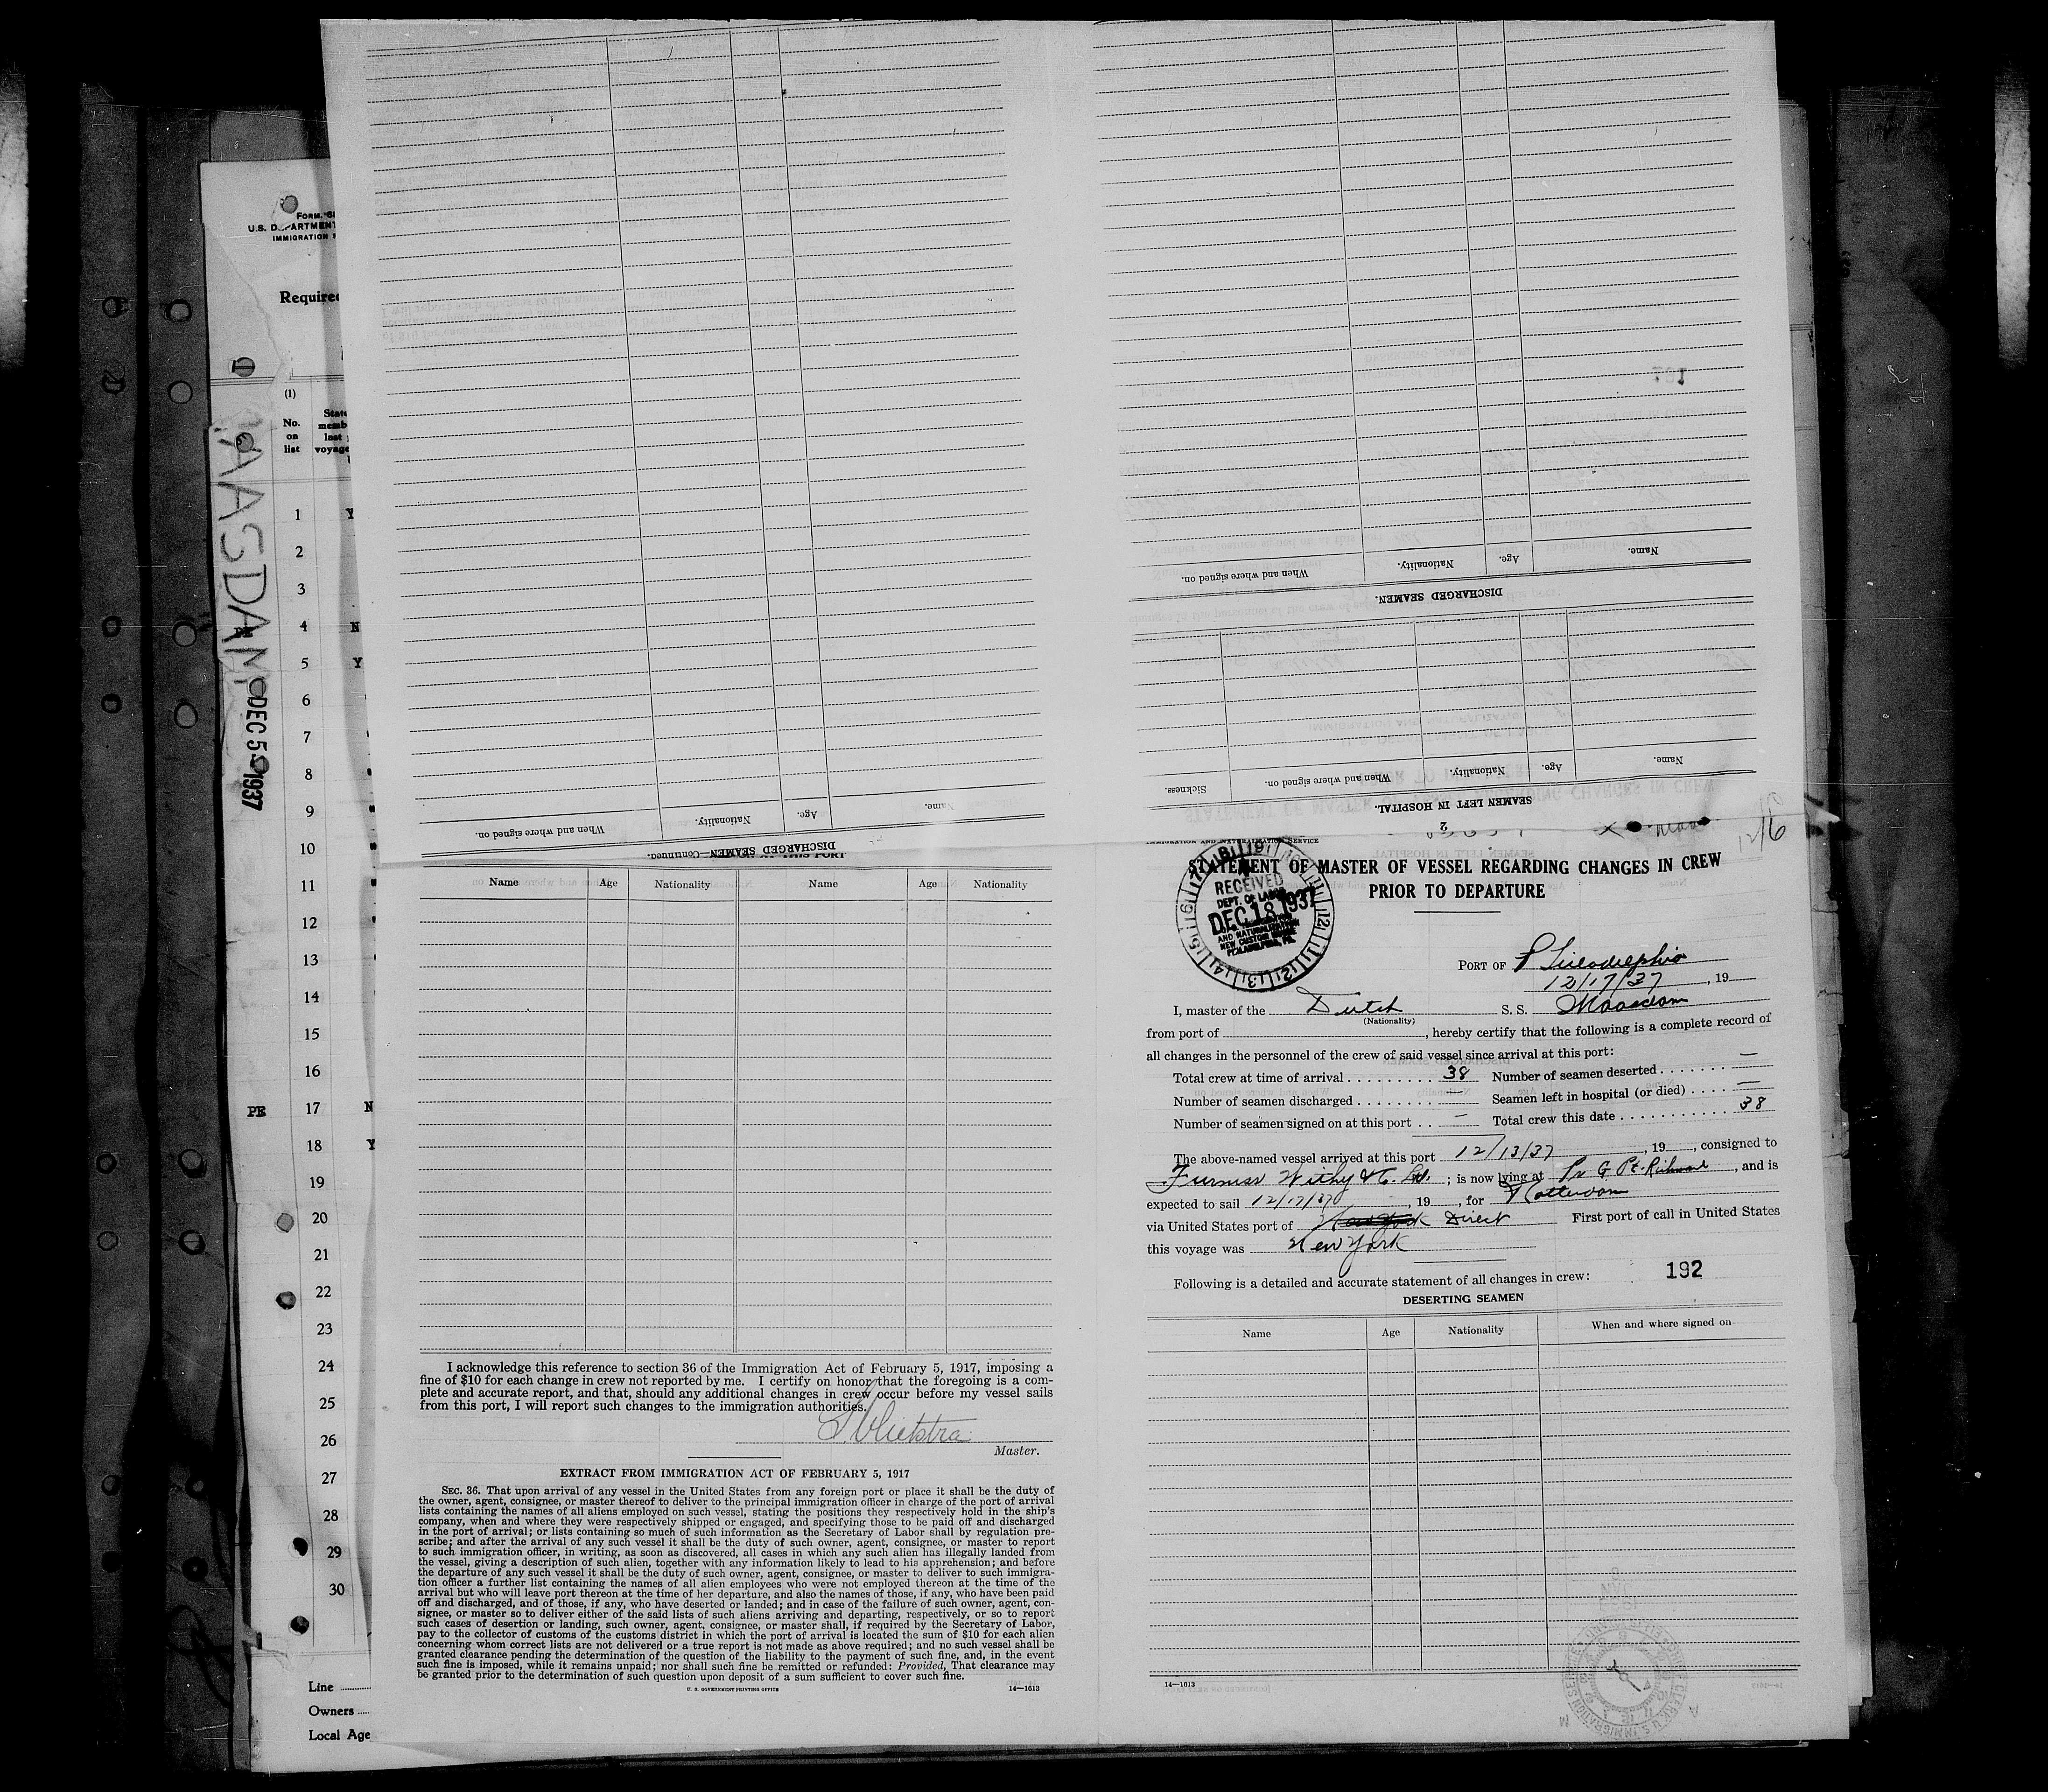 FORM
U.S. DEPARTMENT
IMMIGRATION
Required
(1)
No.
on
list
State
memb
last
voyage
AASDAM
DEC 5 - 1937
1 Y
2
3
4 N
5 Y
6
7
8
9
10
11
12
13
14
15
16
PE 17 N
18 Y
19
20
21
22
23
24
25
26
27
28
29
30
Line
Owners
Local Age
When and where signed on. Nationality. Age. Name.
DISCHARGED SEAMEN—Continued.
When and where signed on. Nationality. Age. Name.
DISCHARGED SEAMEN.
Sickness. When and where signed on. Nationality. Age. Name.
SEAMEN LEFT IN HOSPITAL.
2
THIS PORT
Name Age Nationality Name Age Nationality
I acknowledge this reference to section 36 of the Immigration Act of February 5, 1917, imposing a
fine of $10 for each change in crew not reported by me. I certify on honor that the foregoing is a com-
plete and accurate report, and that, should any additional changes in crew occur before my vessel sails
from this port, I will report such changes to the immigration authorities.
Master.
EXTRACT FROM IMMIGRATION ACT OF FEBRUARY 5, 1917
SEC. 36. That upon arrival of any vessel in the United States from any foreign port or place it shall be the duty of
the owner, agent, consignee, or master thereof to deliver to the principal immigration officer in charge of the port of arrival
lists containing the names of all aliens employed on such vessel, stating the positions they respectively hold in the ship's
company, when and where they were respectively shipped or engaged, and specifying those to be paid off and discharged
in the port of arrival; or lists containing so much of such information as the Secretary of Labor shall by regulation pre-
scribe; and after the arrival of any such vessel it shall be the duty of such owner, agent, consignee, or master to report
to such immigration officer, in writing, as soon as discovered, all cases in which any such alien has illegally landed from
the vessel, giving a description of such alien, together with any information likely to lead to his apprehension; and before
the departure of any such vessel it shall be the duty of such owner, agent, consignee, or master to deliver to such immigra-
tion officer a further list containing the names of all alien employees who were not employed thereon at the time of the
arrival but who will leave port thereon at the time of her departure, and also the names of those, if any, who have been paid
off and discharged, and of those, if any, who have deserted or landed; and in case of the failure of such owner, agent, con-
signee, or master so to deliver either of the said lists of such aliens arriving and departing, respectively, or so to report
such cases of desertion or landing, such owner, agent, consignee, or master shall, if required by the Secretary of Labor,
pay to the collector of customs of the customs district in which the port of arrival is located the sum of $10 for each alien
concerning whom correct lists are not delivered or a true report is not made as above required; and no such vessel shall be
granted clearance pending the determination of the question of the liability to the payment of such fine, and, in the event
such fine is imposed, while it remains unpaid; nor shall such fine be remitted or refunded: Provided, That clearance may
be granted prior to the determination of such question upon deposit of a sum sufficient to cover such fine.
U. S. GOVERNMENT PRINTING OFFICE 14—1613
IMMIGRATION AND NATURALIZATION SERVICE
STATEMENT OF MASTER OF VESSEL REGARDING CHANGES IN CREW
PRIOR TO DEPARTURE
RECEIVED
DEPT. OF LABOR
DEC 18 1937
AND NATURALIZATION
NEW CUSTOM HOUSE
PHILADELPHIA, PA.
PORT OF Philadelphia
12/17/37, 19
I, master of the Dutch S. S. Maasdam
(Nationality)
from port of , hereby certify that the following is a complete record of
all changes in the personnel of the crew of said vessel since arrival at this port:
Total crew at time of arrival 38 Number of seamen deserted —
Number of seamen discharged — Seamen left in hospital (or died) —
Number of seamen signed on at this port — Total crew this date 38
The above-named vessel arrived at this port 12/13/37, 19 , consigned to
Furness Withy & C. Ltd.; is now lying at Pr G Pt. Richmond, and is
expected to sail 12/17/37, 19 , for Rotterdam
via United States port of New York Direct First port of call in United States
this voyage was New York
Following is a detailed and accurate statement of all changes in crew: 192
DESERTING SEAMEN
Name Age Nationality When and where signed on
14—1613